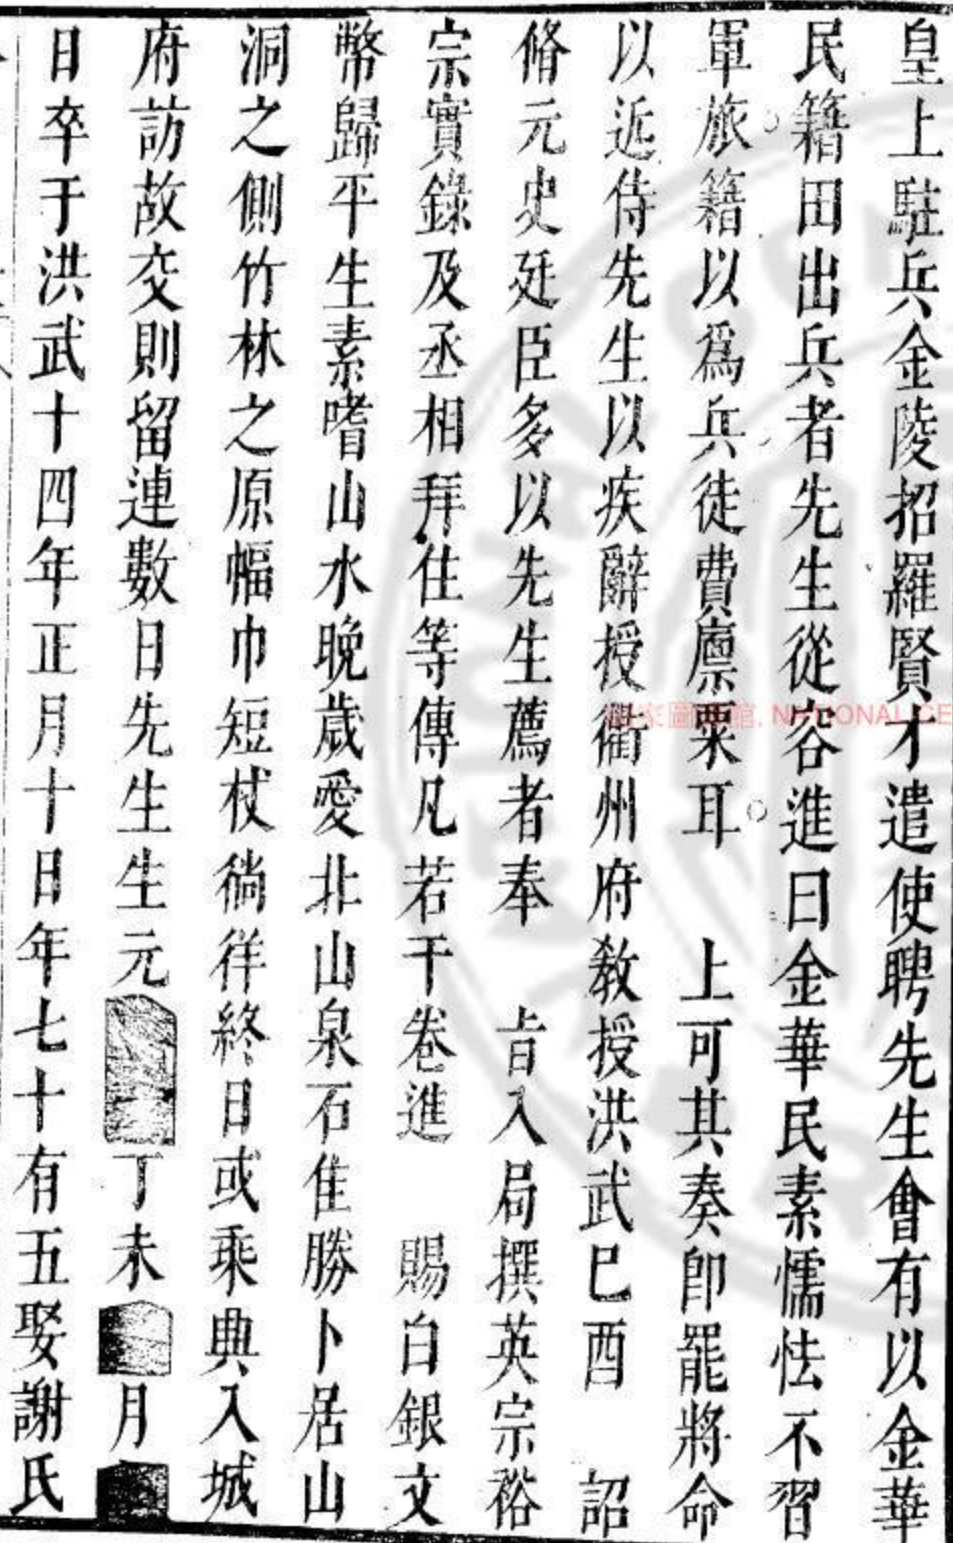 皇上駐兵金陵招羅賢才遣使聘先生會有以金華
民籍田出兵者先生從容進曰金華民素懦怯不習
軍旅籍以爲兵徒費廪粟耳　上可其奏卽罷將命
以近侍先生以疾辭授衢州府敎授洪武巳酉　詔
脩元史廷臣多以先生薦者奉　旨入局撰英宗裕
宗實錄及丞相拜住等傳凡若干卷進　賜白銀文
幣歸平生素嗜山水晚歲愛北山泉石隹勝卜居山
洞之側竹林之原幅巾短杖徜徉終日或乘典入城
府訪故交則留連數日先生生元丁未月
日卒于洪武十四年正月十日年七十有五娶謝氏
家圖館, NATIONAL CE